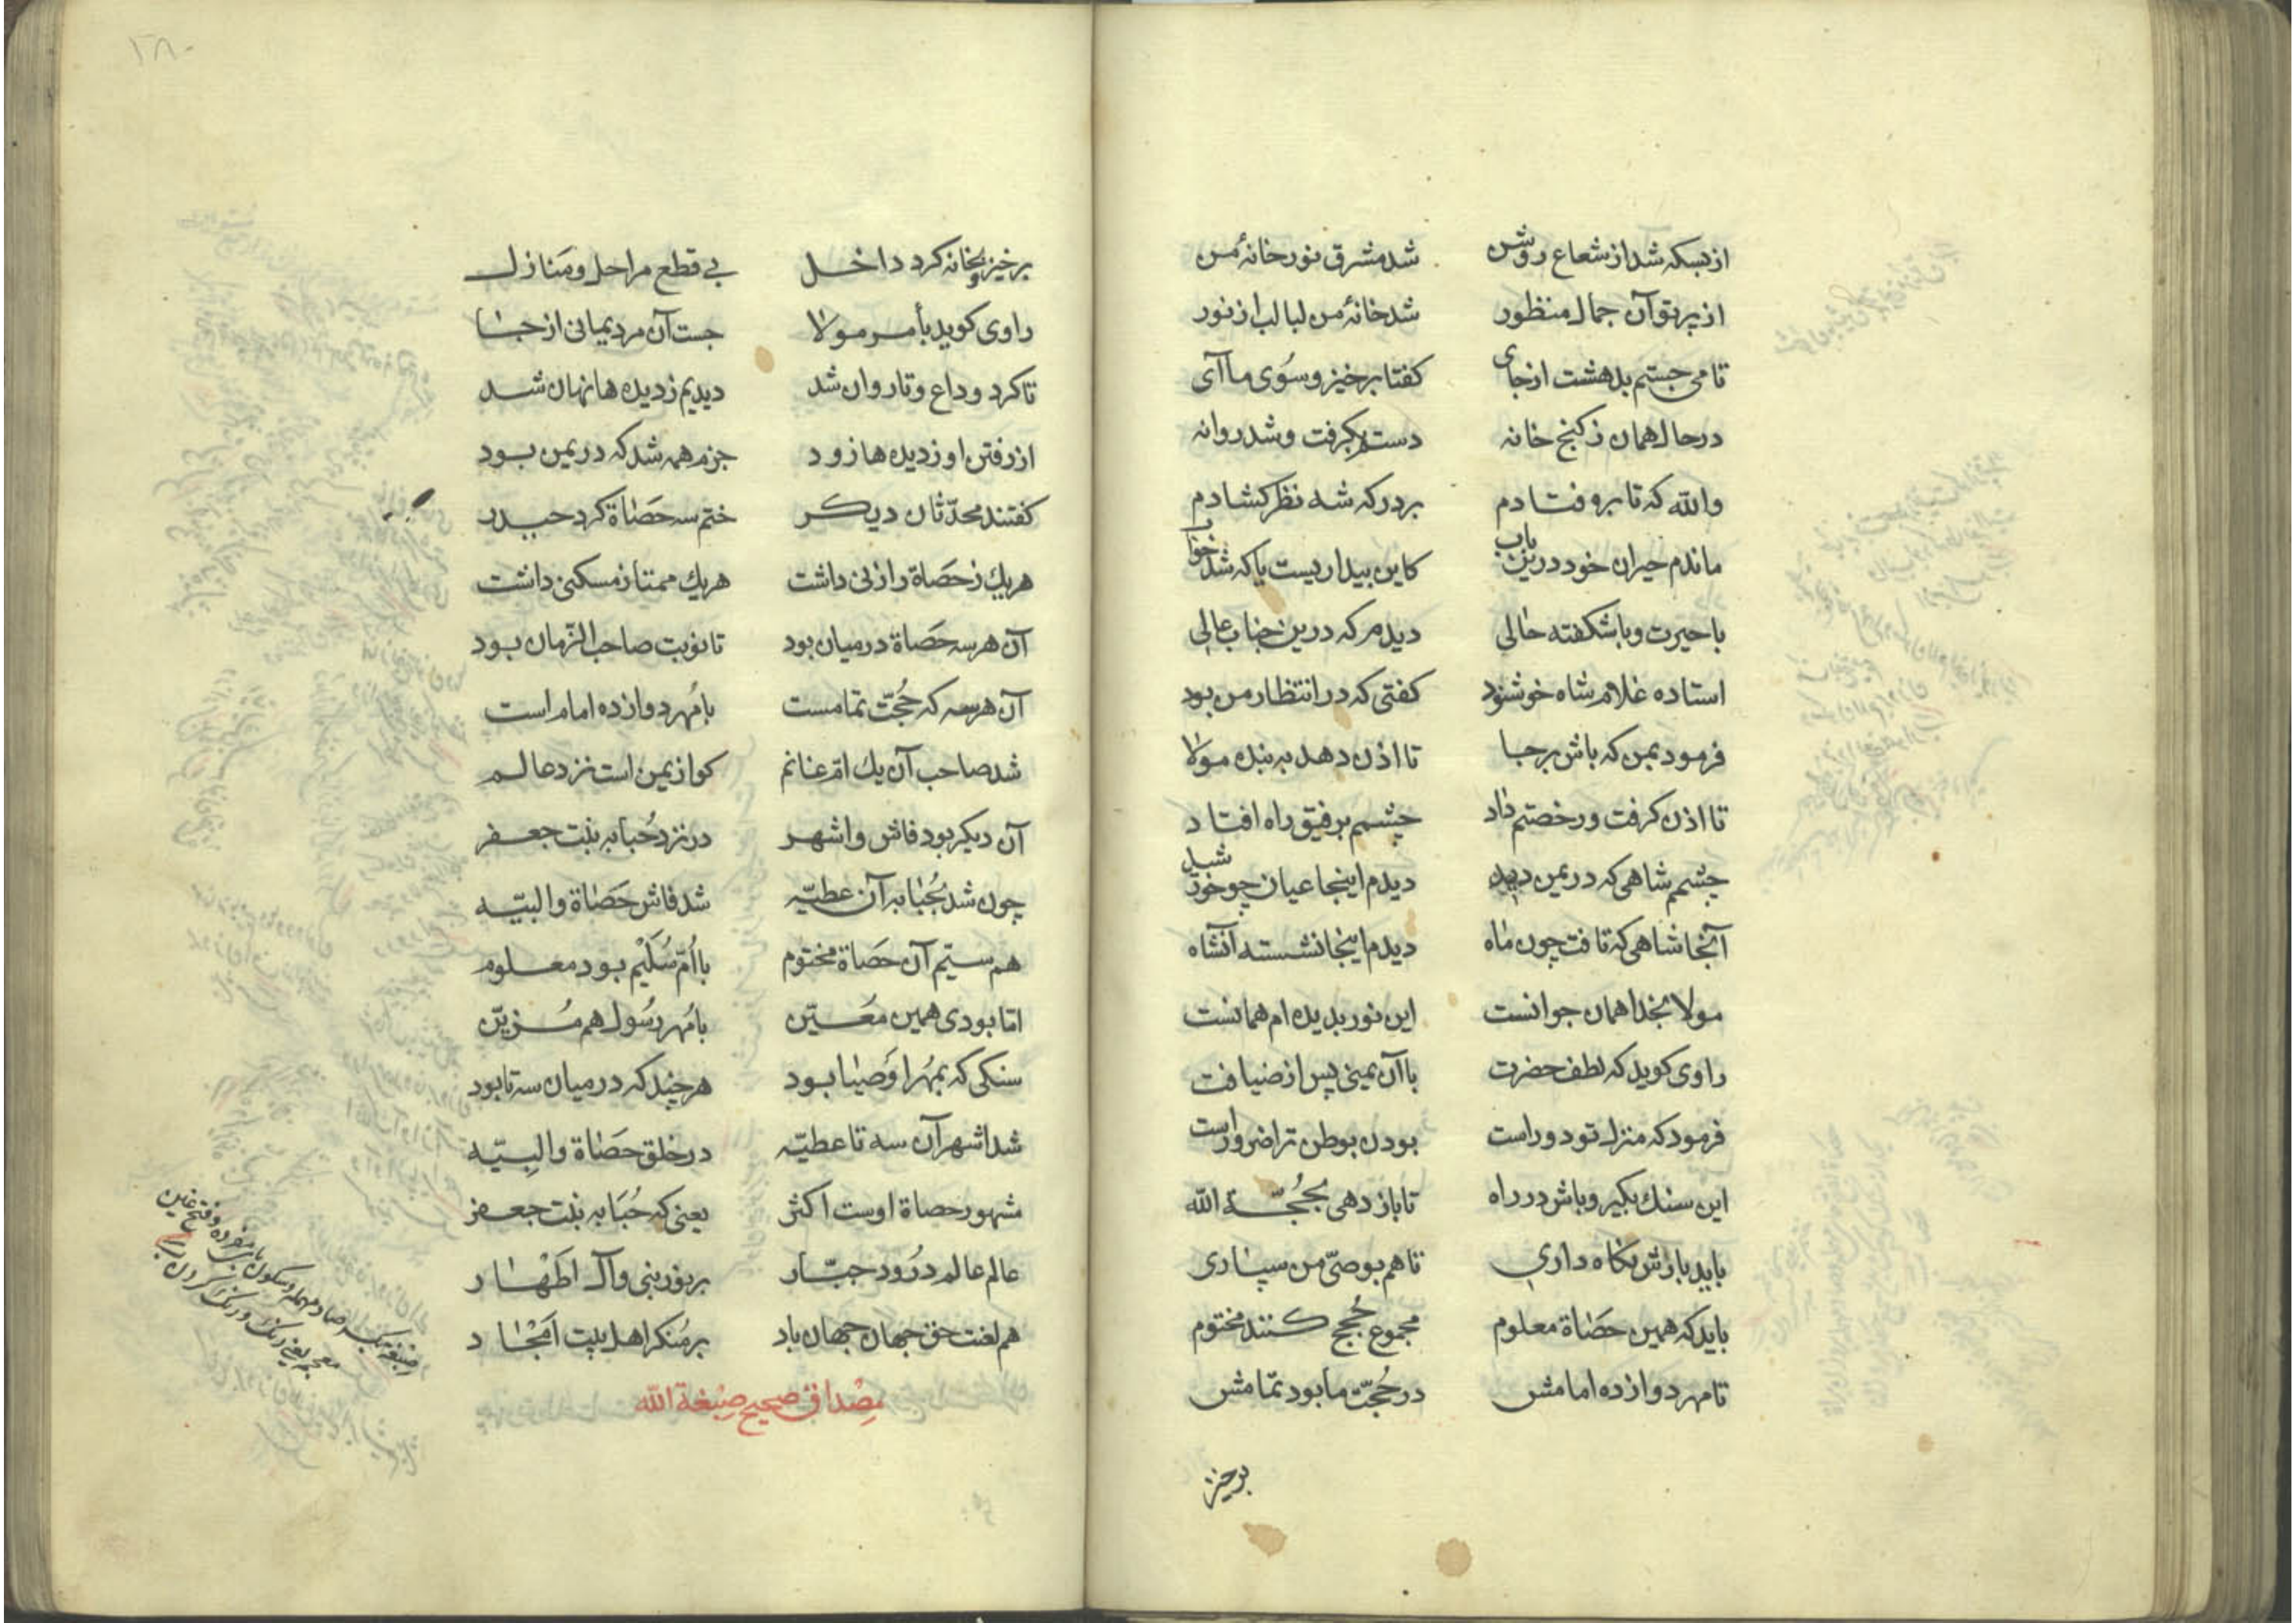 از بسکه شد از شعاع روش شد مشرق نور خانهٔ من
از پرتو آن جمال منظور شد خانهٔ من لبالب از نور
تا می جستم بدهشت از جای کفتا برخیز و سوی ما آی
در حال همان ز کنج خانه دستم بکرفت و شد روانه
والله که تا برو فتادم بر درکه شه نظر کشادم
ماندم حیران خود درین باب کاین بیداریست یا که شد خواب
با حیرت و با شکفته حالی دیدم که درین جناب عالی
استاده غلام شاه خوشنود کفتی که در انتظار من بود
فرمود بمن که باش بر جا تا اذن دهد به بنده مولا
تا اذن کرفت و رخصتم داد چشمم برفیق راه افتاد
چشمم شاهی که در یمن دید دیدم اینجا عیان چو خورشید
آنجا شاهی که تافت چون ماه دیدم اینجا نشسته آنشاه
مولا بخدا همان جوانست این نور بدیده ام همانست
راوی کوید که لطف حضرت با آن یمنی پس از ضیافت
فرمود که منزل تو دور است بودن بوطن ترا ضرور است
این سنک بکیر و باش در راه تا باز دهی بحُجّة الله
باید بازش نکاه داری تا هم بوصیّ من سپاری
باید که همین حَصاة معلوم مجموع حُجج کنند مختوم
تا مهر دوازده امامش در حُجّت ما بود تمامش
برخیز
۲۸۰
برخیز و بخانه کرد داخل بی قطع مراحل و مَنازل
راوی کوید بأمر مولا جست آن مرد یمانی از جا
تا کرد وداع و تا روان شد دیدیم ز دیده ها نهان شد
از رفتن او ز دیده ها زود جزم همه شد که در یمن بود
کفتند محدّثان دیکر ختم سه حَصاة کرد حیدر
هر یك ز حَصاة را زنی داشت هر یك ممتاز مسکنی داشت
آن هر سه حَصاة در میان بود تا نوبت صاحب الزّمان بود
آن هر سه که حُجّت تمامست با مُهر دوازده امام است
شد صاحب آن یك امّ غانم کو از یمن است نزد عالم
آن دیکر بود فاش و اشهر در نزد حُبابه بنت جعفر
چون شد بحُبابه آن عطیّه شد فاش حَصاة والبیّه
هم سیّم آن حَصاة مختوم با اُمّ سُلَیْم بود معلوم
امّا بودی همین مُعَیّن با مُهر رسُول هم مُزیّن
سنکی که بمُهر اوصیا بود هر چند که در میان سه تا بود
شد اشهر آن سه تا عطیّه در خلق حَصاة والبِیّه
مشهور حصاة اوست اکثر یعنی که حُبَابه بنت جعفر
عالم عالم درُود جبّار بر نور نبی و آل اطهار
هم لعنت حق جهان جهان باد بر مُنکر اهل بیت امْجاد
مِصْداق صحیح صِبْغة الله
صبغه بکسر صاد مهمله و سکون باء مفرده و فتح غین
معجمه یعنی رنك و رنك کردن